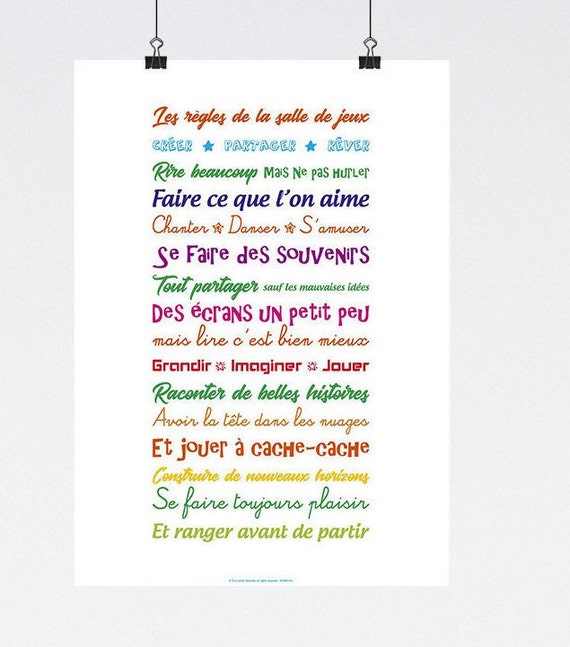 Les règles de la salle de jeux
CRÉER ★ PARTAGER ★ RÊVER
Rire beaucoup Mais Ne pas hurler
Faire ce que l'on aime
Chanter Danser S'amuser
Se Faire des souvenirs
Tout partager sauf les mauvaises idées
Des écrans un petit peu
mais lire c'est bien mieux
Grandir Imaginer Jouer
Raconter de belles histoires
Avoir la tête dans les nuages
Et jouer à cache-cache
Construire de nouveaux horizons
Se faire toujours plaisir
Et ranger avant de partir